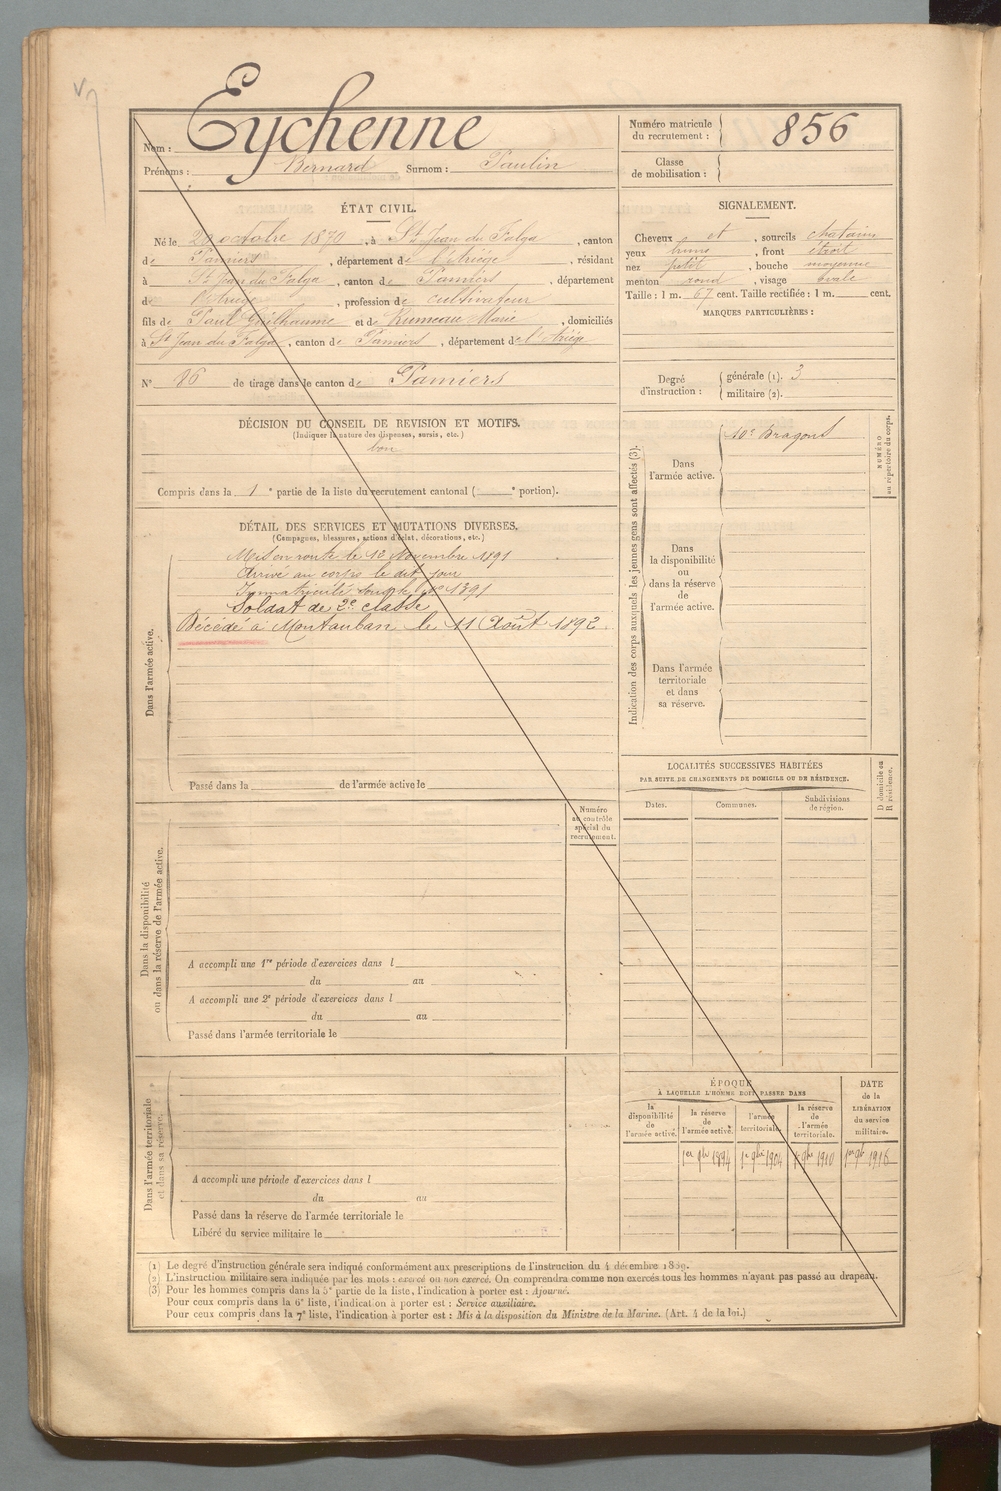 Nom : Eychenne
Prénoms : Bernard Surnom : Paulin
Numéro matricule
du recrutement : 856
Classe
de mobilisation :
ÉTAT CIVIL.
Né le 20 octobre 1870, à St Jean du Falga, canton
de Pamiers, département de l'Ariège, résidant
à St Jean du Falga, canton de Pamiers, département
de l'Ariège, profession de cultivateur
fils de Paul Guilhaume et de Rumeau Marie, domiciliés
à St Jean du Falga, canton de Pamiers, département de l'Ariège
N° 86 de tirage dans le canton de Pamiers
SIGNALEMENT.
Cheveux et, sourcils chatains
yeux bruns, front étroit
nez petit, bouche moyenne
menton rond, visage ovale
Taille : 1 m. 67 cent. Taille rectifiée : 1 m. cent.
MARQUES PARTICULIÈRES :
Degré
d'instruction :
générale (1). 3
militaire (2).
DÉCISION DU CONSEIL DE REVISION ET MOTIFS.
(Indiquer la nature des dispenses, sursis, etc.)
bon
Compris dans la 1e partie de la liste du recrutement cantonal ( e portion).
DÉTAIL DES SERVICES ET MUTATIONS DIVERSES.
(Campagnes, blessures, actions d'éclat, décorations, etc.)
Dans l'armée active.
Mis en route le 12 Novembre 1891
Arrivé au corps le dit jour
Immatriculé sous le n° 1391
Soldat de 2e classe
Décédé à Montauban le 11 Août 1892.
Passé dans la de l'armée active le
Indication des corps auxquels les jeunes gens sont affectés (3).
Dans
l'armée active.
10e Dragons
NUMÉRO
au répertoire du corps.
Dans
la disponibilité
ou
dans la réserve
de
l'armée active.
Dans l'armée
territoriale
et dans
sa réserve.
LOCALITÉS SUCCESSIVES HABITÉES
PAR SUITE DE CHANGEMENTS DE DOMICILE OU DE RÉSIDENCE.
Dates.
Communes.
Subdivisions
de région.
D domicile ou
R résidence.
Numéro
au contrôle
spécial du
recrutement.
Dans la disponibilité
ou dans la réserve de l'armée active.
A accompli une 1re période d'exercices dans l
du au
A accompli une 2e période d'exercices dans l
du au
Passé dans l'armée territoriale le
Dans l'armée territoriale
et dans sa réserve.
A accompli une période d'exercices dans l
du au
Passé dans la réserve de l'armée territoriale le
Libéré du service militaire le
ÉPOQUE
À LAQUELLE L'HOMME DOIT PASSER DANS
la
disponibilité
de
l'armée active.
la réserve
de
l'armée active.
l'armée
territoriale.
la réserve
de
l'armée
territoriale.
DATE
de la
LIBÉRATION
du service
militaire.
1er 9bre 1894 1er 9bre 1904 1er 9bre 1910 1er 9bre 1916
(1) Le degré d'instruction générale sera indiqué conformément aux prescriptions de l'instruction du 4 décembre 1889.
(2) L'instruction militaire sera indiquée par les mots : exercé ou non exercé. On comprendra comme non exercés tous les hommes n'ayant pas passé au drapeau.
(3) Pour les hommes compris dans la 5e partie de la liste, l'indication à porter est : Ajourné.
Pour ceux compris dans la 6e liste, l'indication à porter est : Service auxiliaire.
Pour ceux compris dans la 7e liste, l'indication à porter est : Mis à la disposition du Ministre de la Marine. (Art. 4 de la loi.)